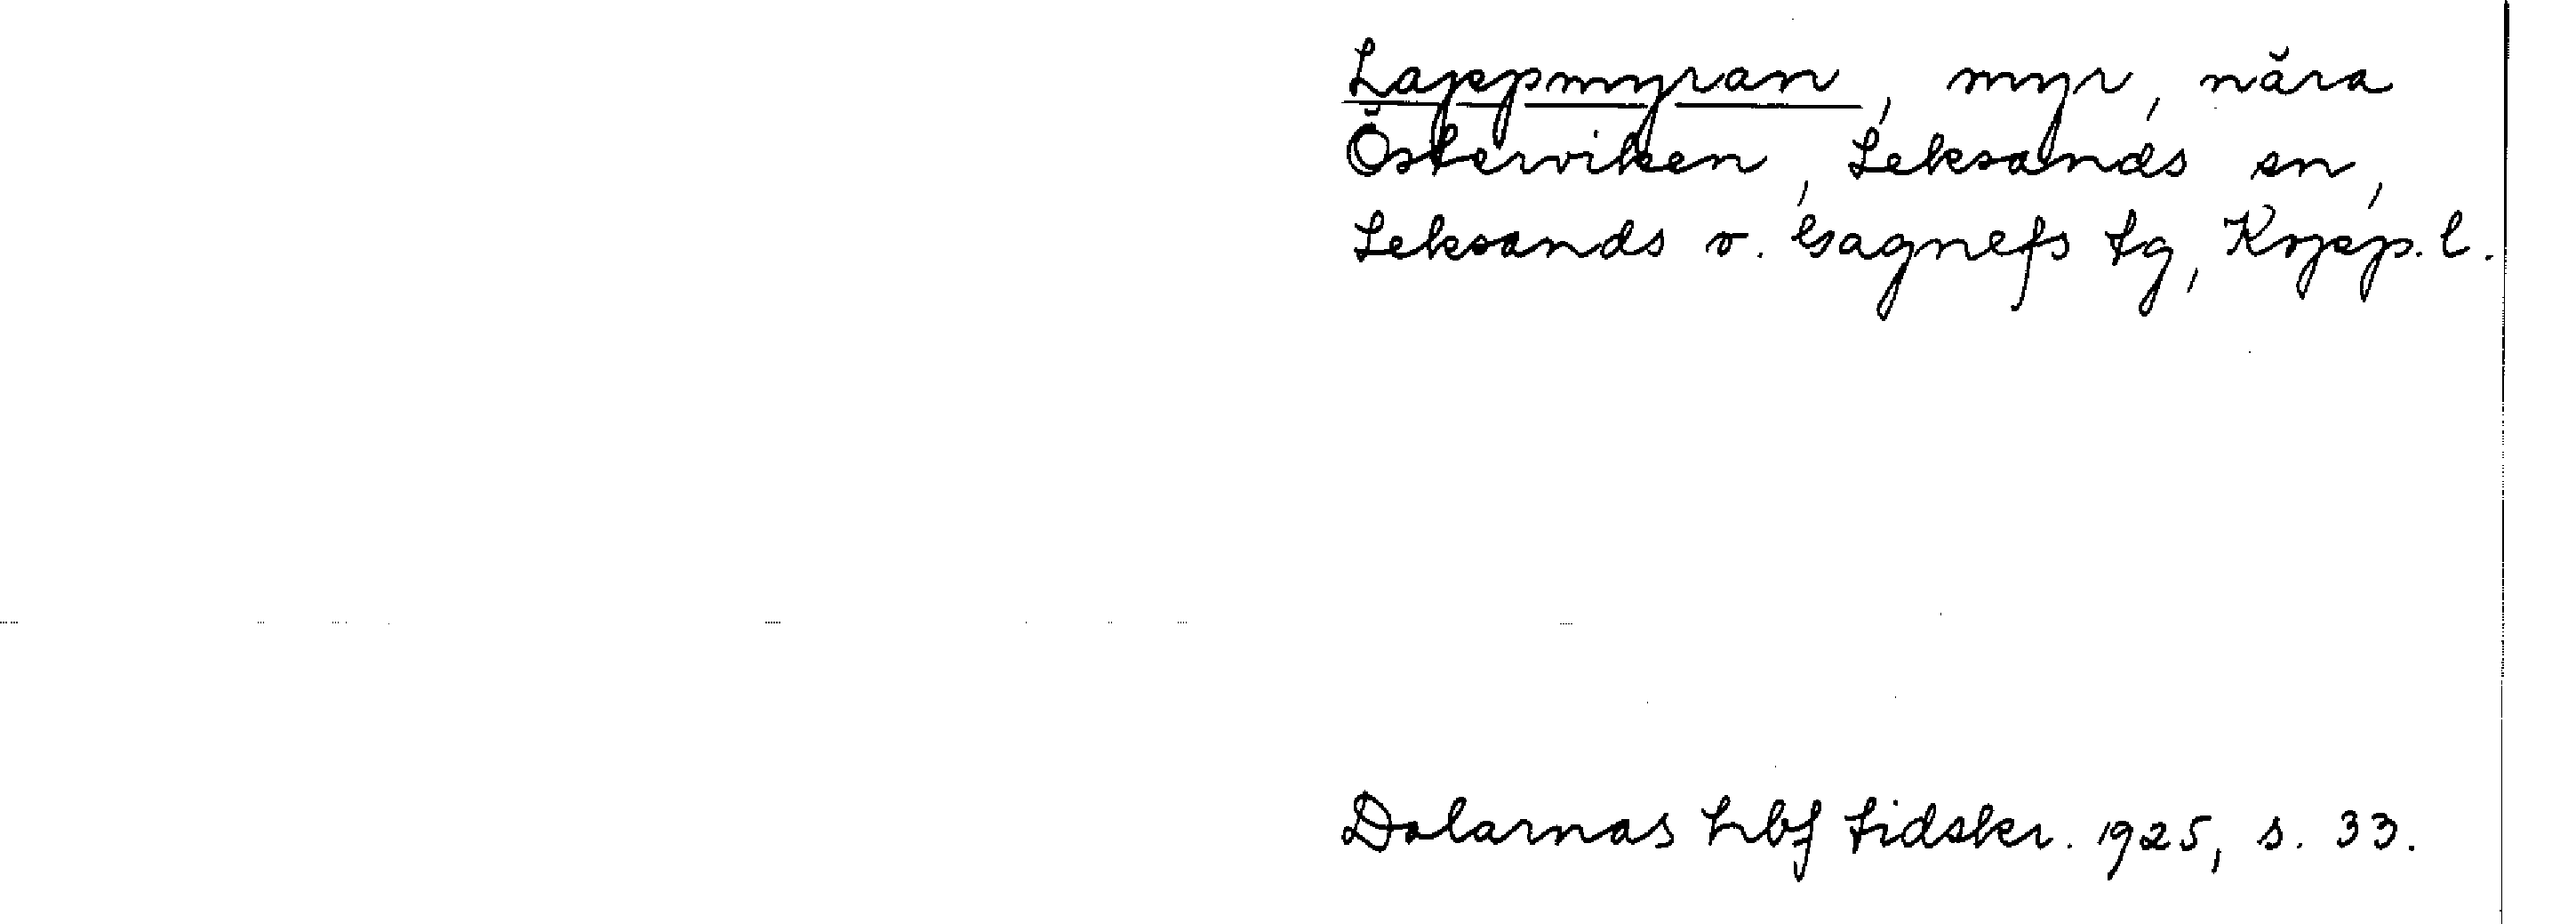 Lappmyran, myr, nära
Österviken, Leksands sn,
Leksands o. Gagnefs tg, Kopp. l.
Dalarnas hbf tidskr. 1925, s. 33.